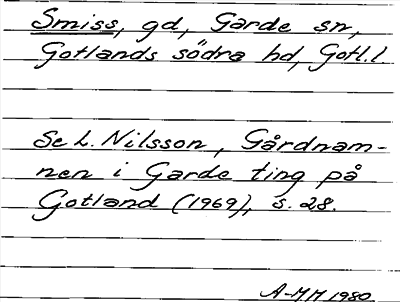 Smiss, gd, Garde sn,
Gotlands södra hd, Gotl.l
Se L. Nilsson, Gårdnam-
nen i Garde ting på
Gotland (1969), s. 28.
A-MM 1980